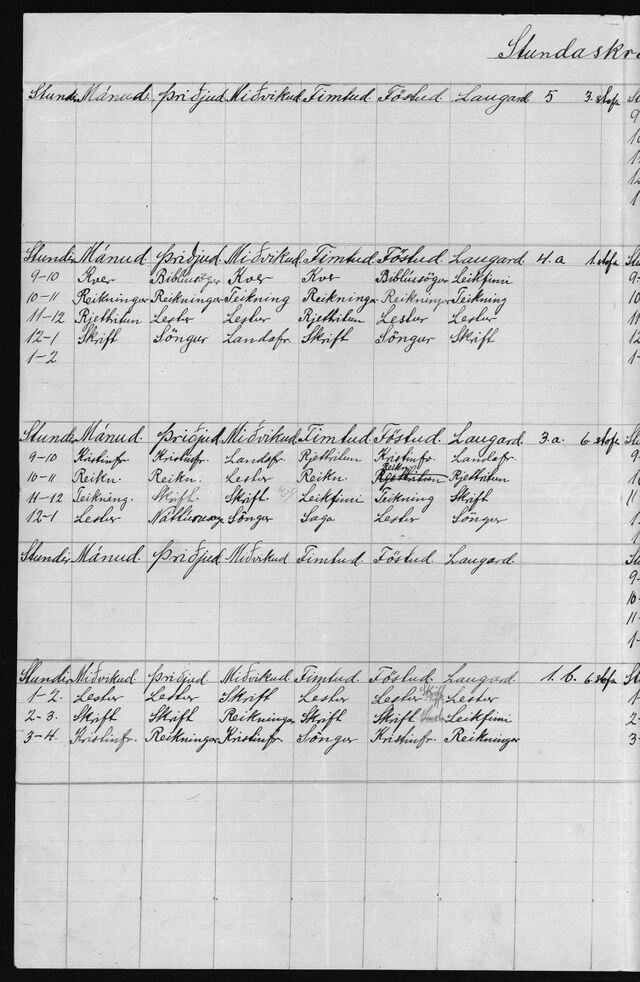 Stundaskr
Stundir Mánud. Þriðjud. Miðvikud. Fimtud. Föstud. Laugard. 5 3. stofa
Stundir Mánud. Þriðjud. Miðvikud. Fimtud. Föstud. Laugard. 4.a 1. stofa
9-10 Kver Biblíusögur Kver Kver Biblíusögur Leikfimi
10-11 Reikningur Reikningur Teikning Reikningur Reikningur Teikning
11-12 Rjettritun Lestur Lestur Rjettritun Lestur Lestur
12-1 Skrift Söngur Landafr. Skrift Söngur Skrift
1-2
Stundir Mánud. Þriðjud. Miðvikud. Fimtud. Föstud. Laugard. 3.a. 6. stofa
9-10 Kristinfr. Kristinfr. Landafr. Rjettritun Kristinfr. Landafr.
10-11 Reikn. Reikn. Lestur Reikn. Rjettritun Rjettritun
11-12 Teikning. Skrift. Skrift Leikfimi Teikning Skrift
12-1 Lestur Söngur Saga Lestur Söngur
Stundir Mánud. Þriðjud. Miðvikud. Fimtud. Föstud. Laugard.
Stundir Miðvikud. Þriðjud Miðvikud Fimtud. Föstud. Laugard 1. b. 6. stofa
1-2. Lestur Lestur Skrift Lestur Lestur Skrift Lestur
2-3. Skrift Skrift Reikningur Skrift Skrift Leikfimi
3-4. Kristinfr. Reikningur Kristinfr. Söngur Kristinfr. Reikningur